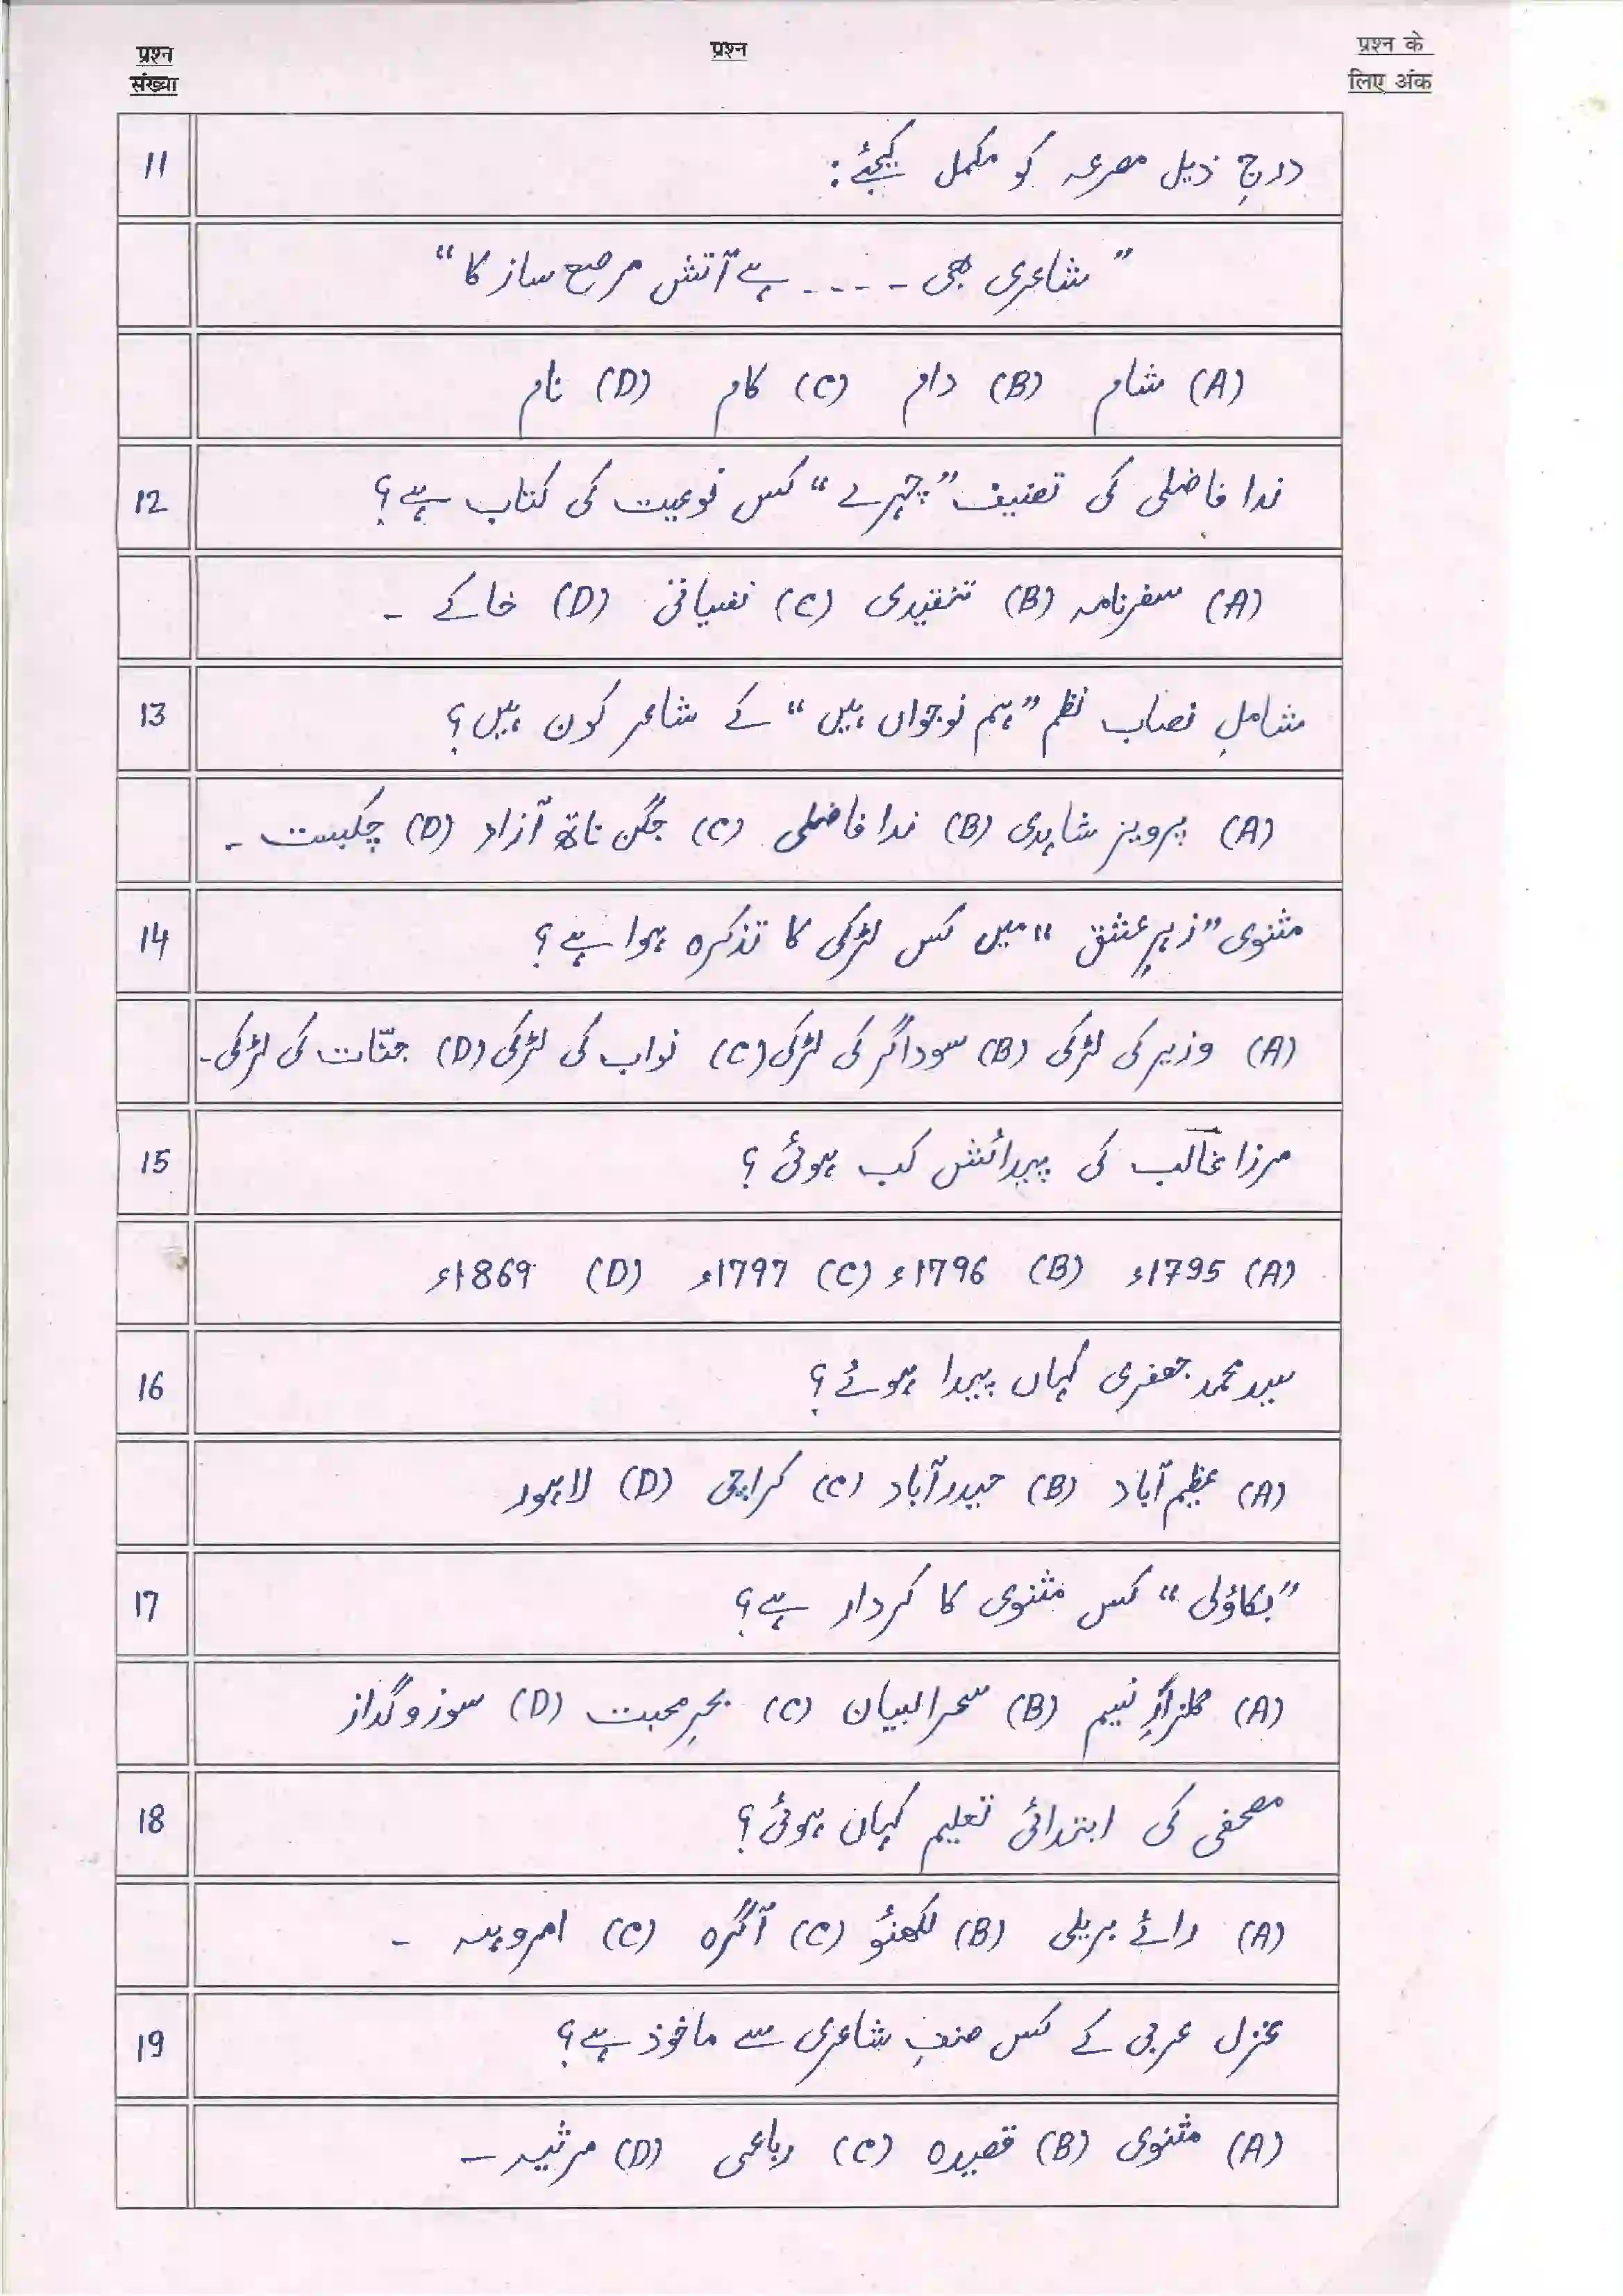 प्रश्न संख्या
प्रश्न
प्रश्न के लिए अंक
11 درجِ ذیل مصرعہ کو مکمل کیجئے:
”شاعری بھی - - - - ہے آتش مرصع ساز کا“
(A) شام (B) دام (C) کام (D) نام
12 ندا فاضلی کی تصنیف ”چہرے“ کس نوعیت کی کتاب ہے؟
(A) سفرنامہ (B) تنقیدی (C) نفسیاتی (D) خاکے -
13 شاملِ نصاب نظم ”ہم نوجواں ہیں“ کے شاعر کون ہیں؟
(A) پرویز شاہدی (B) ندا فاضلی (C) جگن ناتھ آزاد (D) چکبست -
14 مثنوی ”زہرِ عشق“ میں کس لڑکی کا تذکرہ ہوا ہے؟
(A) وزیر کی لڑکی (B) سوداگر کی لڑکی (C) نواب کی لڑکی (D) جنّات کی لڑکی-
15 مرزا غالب کی پیدائش کب ہوئی؟
(A) 1795ء (B) 1796ء (C) 1797ء (D) 1869ء
16 سید محمد جعفری کہاں پیدا ہوئے؟
(A) عظیم آباد (B) حیدرآباد (C) کراچی (D) لاہور
17 ”بکاؤلی“ کس مثنوی کا کردار ہے؟
(A) گلزارِ نسیم (B) سحرالبیان (C) بحرِ محبت (D) سوز و گداز
18 مصحفی کی ابتدائی تعلیم کہاں ہوئی؟
(A) رائے بریلی (B) لکھنؤ (C) آگرہ (C) امروہہ -
19 غزل عربی کے کس صنفِ شاعری سے ماخوذ ہے؟
(A) مثنوی (B) قصیدہ (C) رباعی (D) مرثیہ -